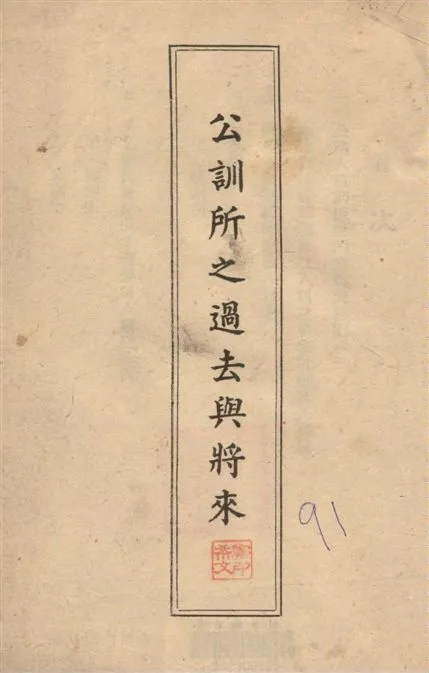 公訓所之過去與將來
91